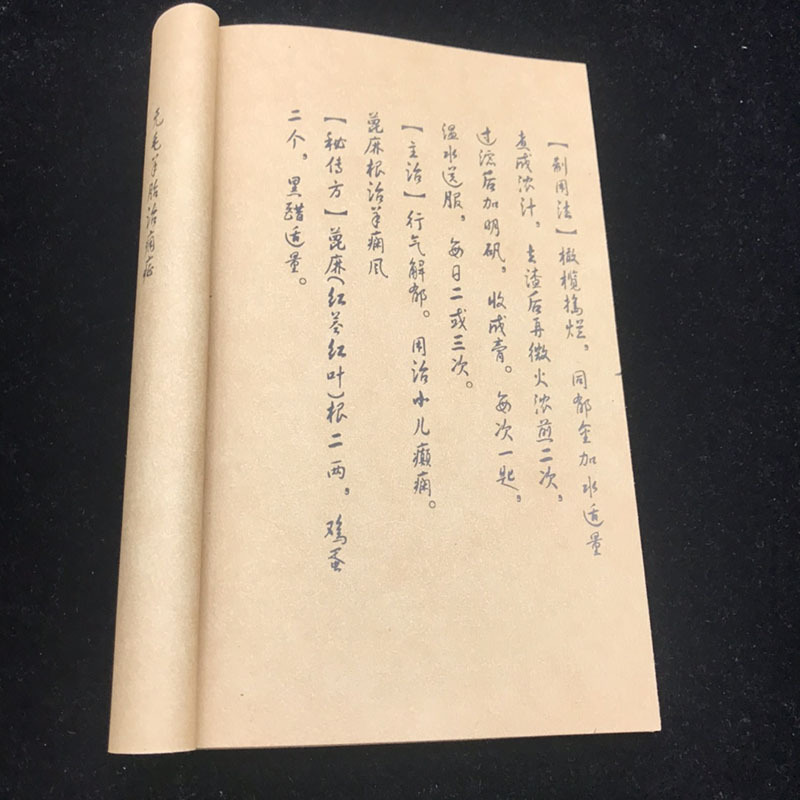 【制用法】橄榄捣烂，同郁金加水适量
煮成浓汁，去渣后再微火浓煎二次，
过滤后加明矾，收成膏。每次一匙，
温水送服，每日二或三次。
【主治】行气解郁。用治小儿癫痫。
蓖麻根治羊痫风
【秘传方】蓖麻（红茎红叶）根二两，鸡蛋
二个，黑醋适量。
无毛羊胎治痫症